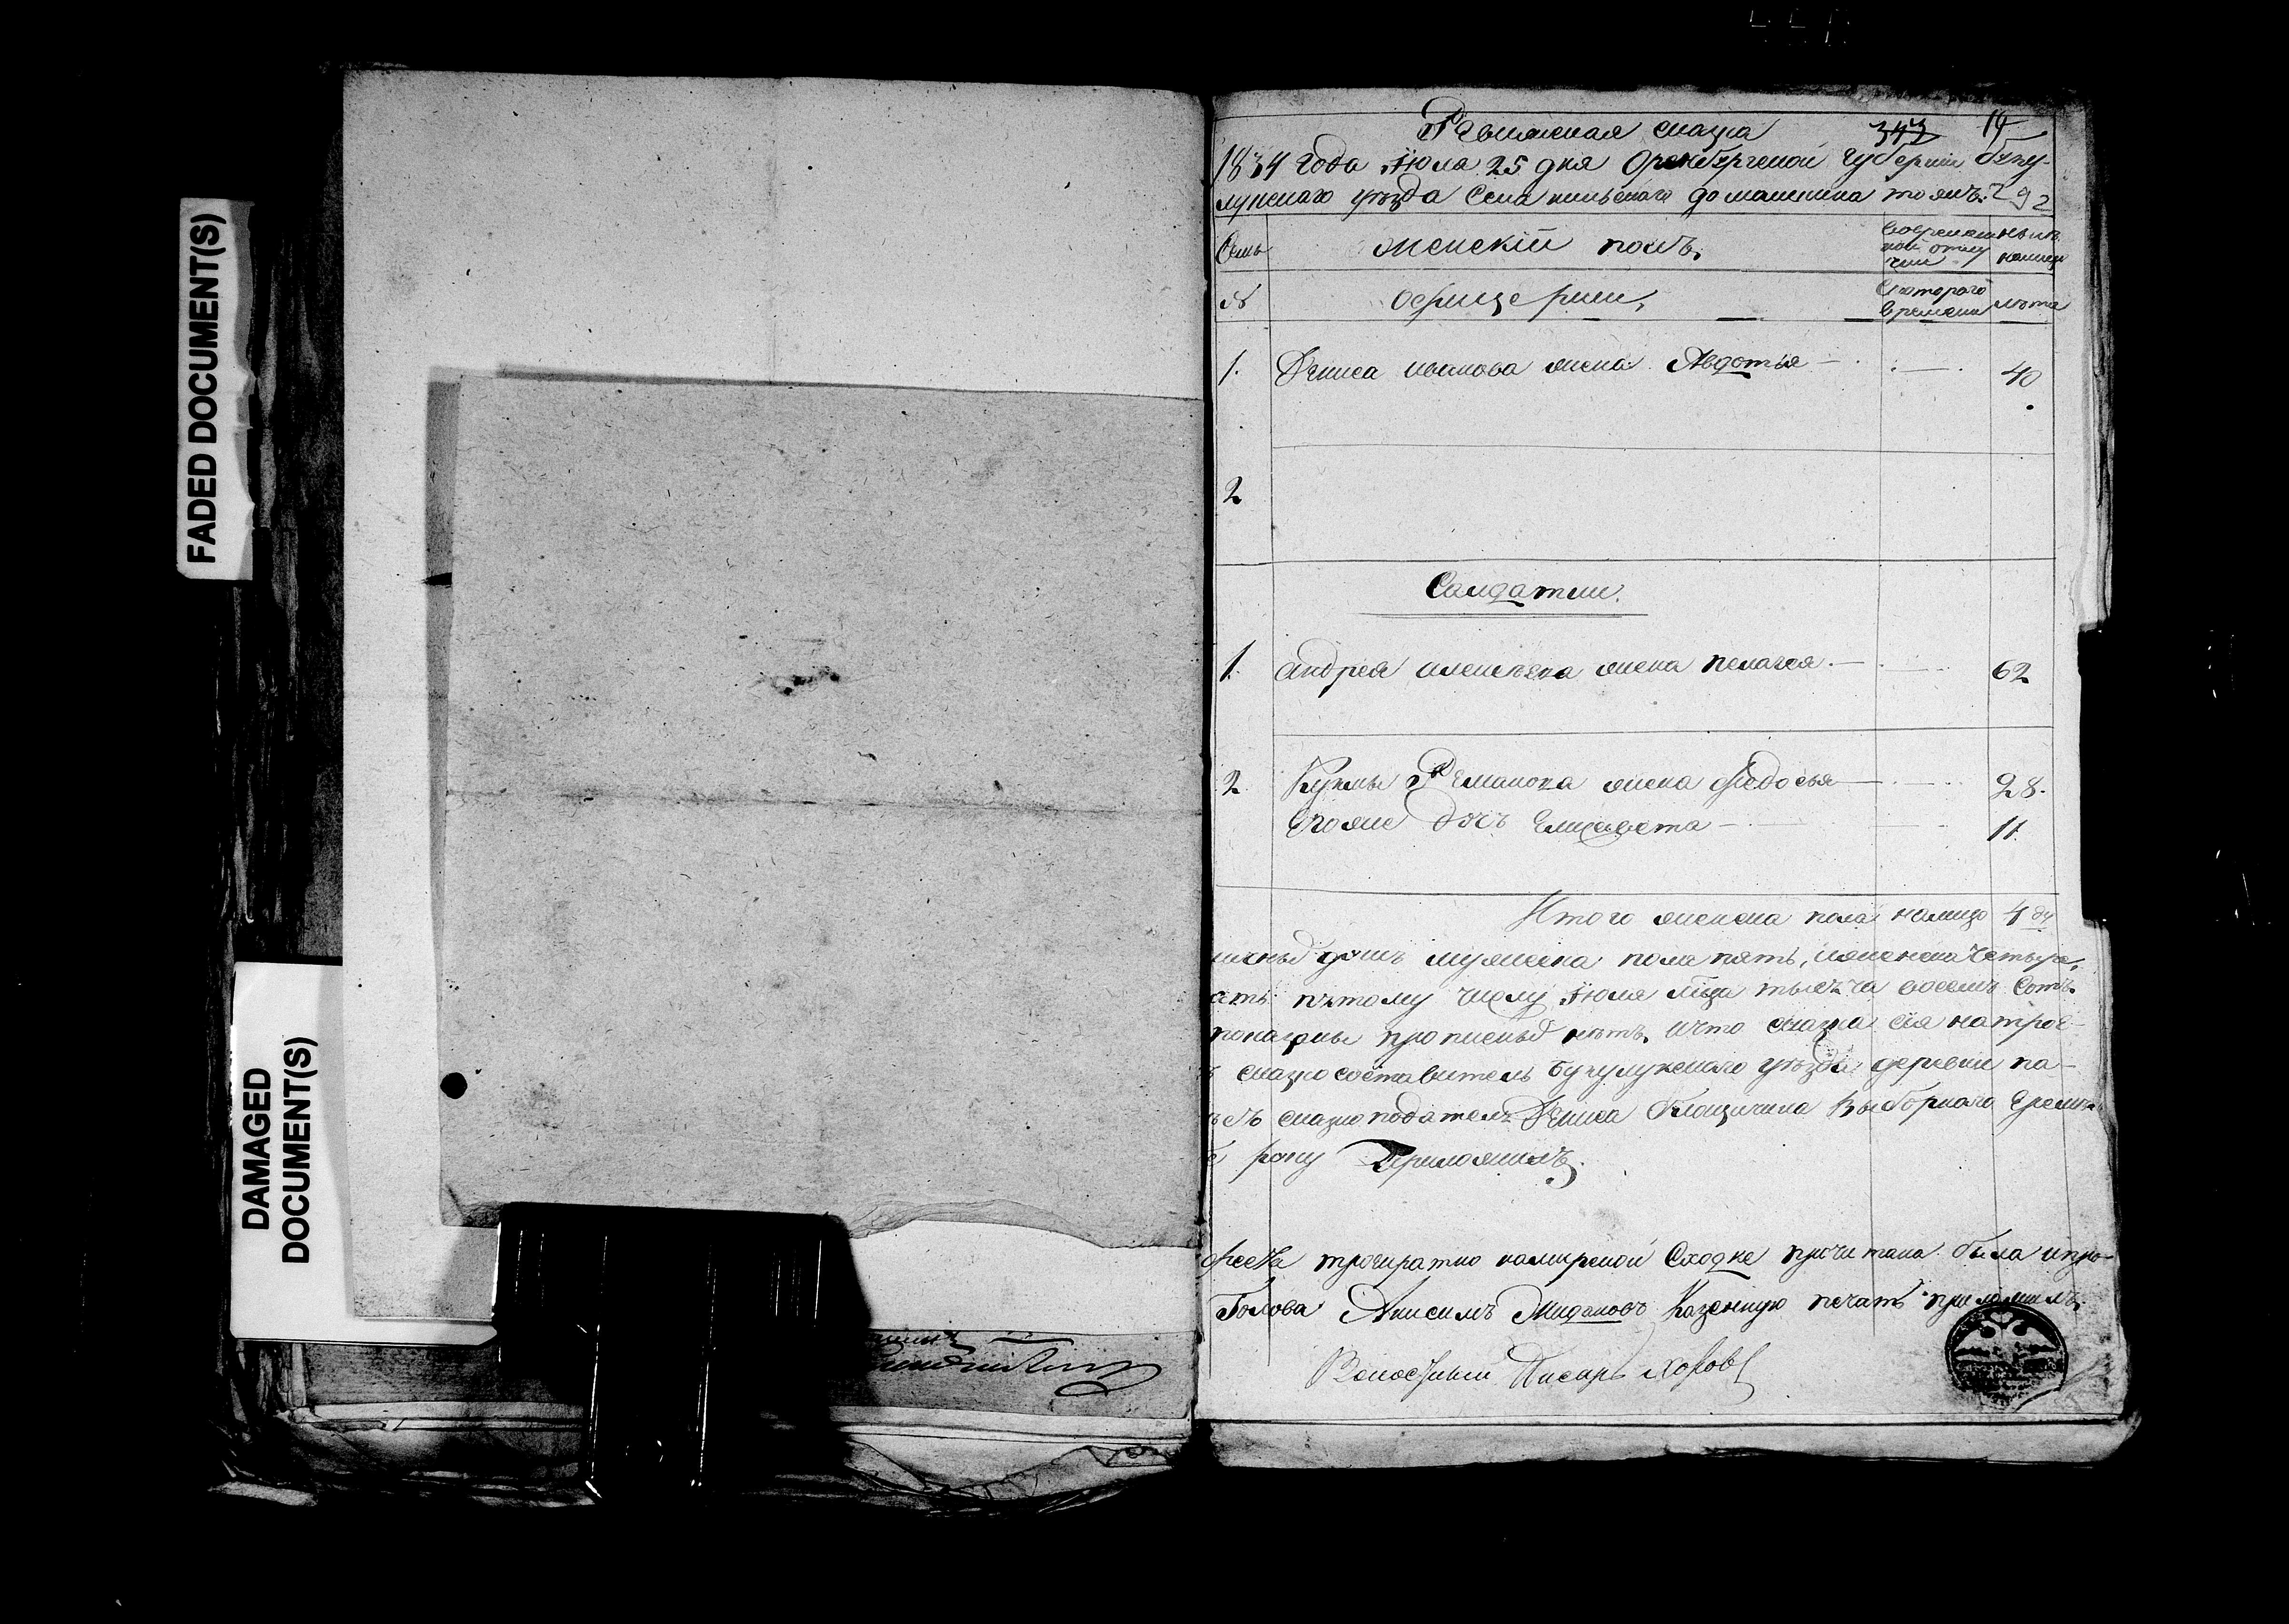 FADED DOCUMENT(S)
DAMAGED
DOCUMENT(S)
Ревижская сказка 343 14
1834 года июла 25 дня Оренбургской губернии бугу-
лускаго уѣзда Села киньскаго домашкина тожъ 292
женскій полъ.
Вовремен
ной отлу
чки
нынѣ
налицо
№ офицерши,
Скотораго
времени
лѣта
1. Дениса иванова жена Авдотья 40
2
Салдатки.
1. андрея алексѣева жена пелагея 62
2. Кузмы Романова жена Федосья 28.
Егоже дочъ Елисавета 11.
Итого женска пола налицо 4
душъ мужеска пола пять, иженска четыре,
кътому числу июля мца тысяча восемь сотъ
прописныхъ нѣтъ, ичто сказка сия натрое-
сказкосоставитель бугулускаго уѣзда деревни па-
сказкоподателя Дениса выборнаго
руку Приложилъ.
троекратно намирской Сходке прочитана была ипри-
Голова Анисимъ Казенную печать приложилъ.
Волостный Писарь